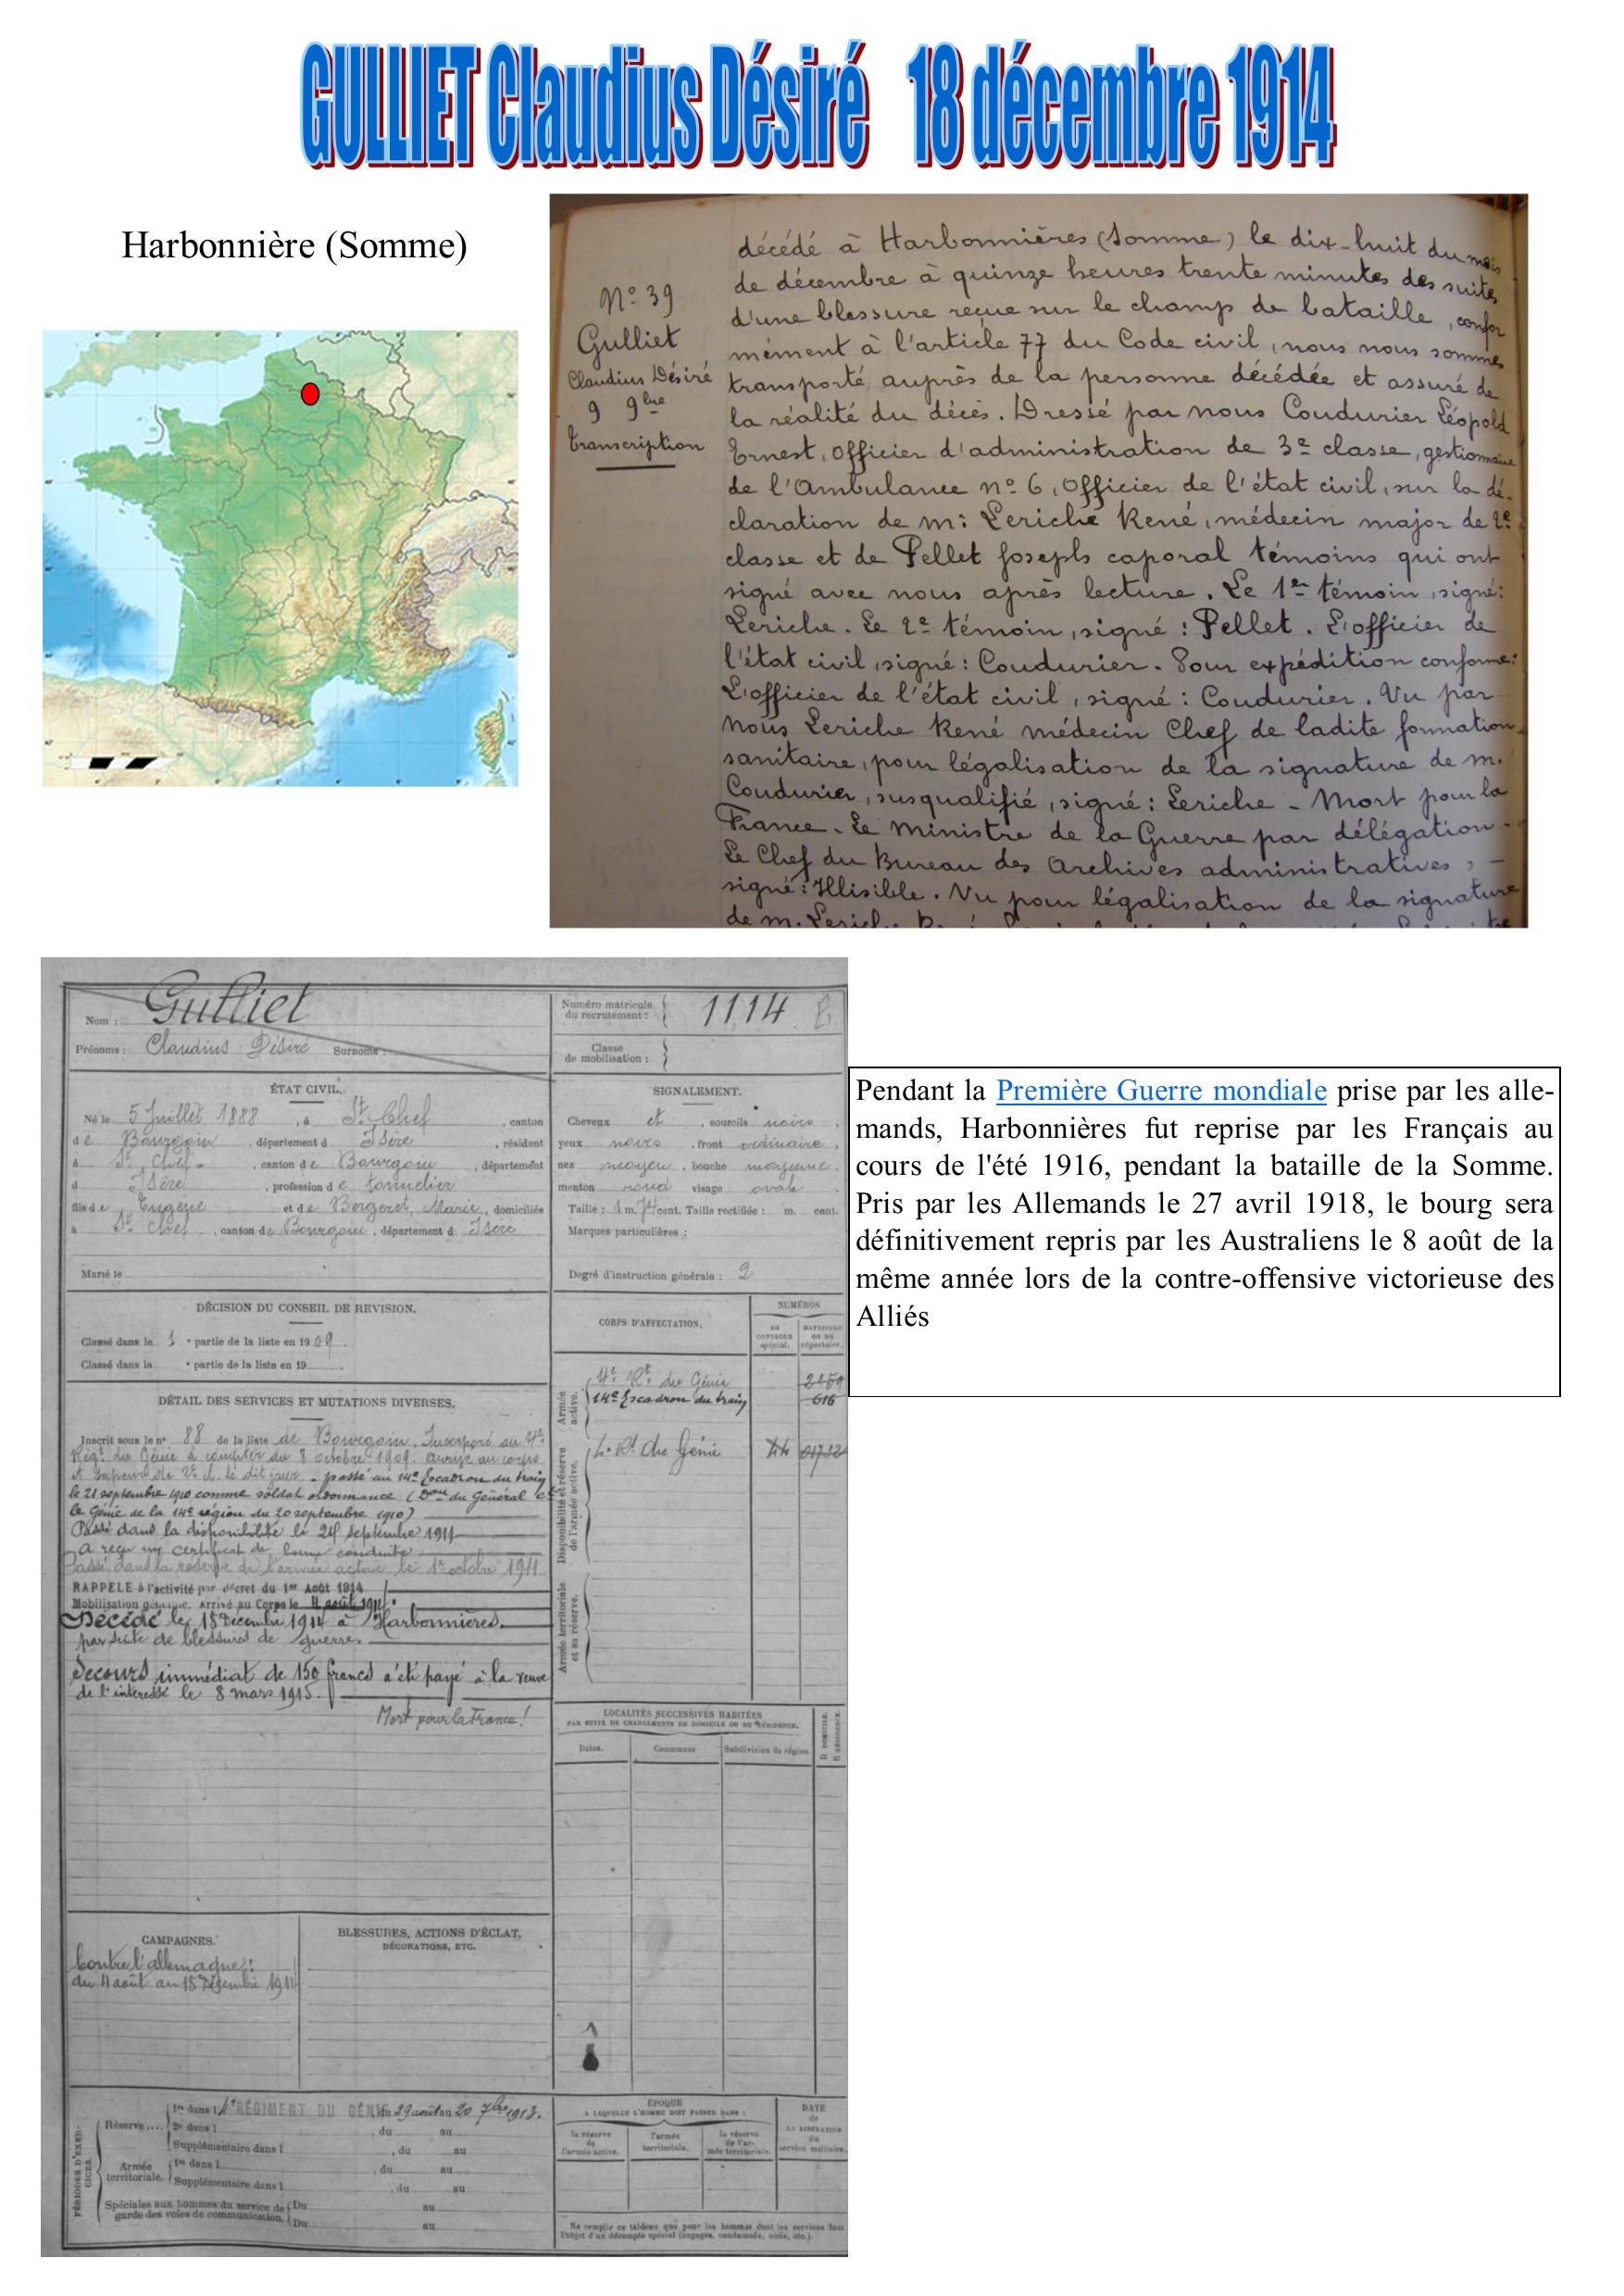 GULLIET Claudius Désiré 18 décembre 1914
Harbonnière (Somme)
N° 39
Gulliet
Claudius Désiré
9 9bre
transcription
décédé à Harbonnières (Somme) le dix-huit du mois
de décembre à quinze heures trente minutes des suites
d'une blessure reçue sur le champ de bataille, confor
mément à l'article 77 du Code civil, nous nous sommes
transporté auprès de la personne décédée et assuré de
la réalité du décès. Dressé par nous Coudurier Léopold
Ernest, Officier d'administration de 3e classe, gestionnaire
de l'Ambulance n° 6, Officier de l'état civil, sur la dé-
claration de m: Leriche René, médecin major de 2e
classe et de Pellet Joseph caporal témoins qui ont
signé avec nous après lecture. Le 1er témoin, signé:
Leriche. Le 2e témoin, signé: Pellet. L'officier de
l'état civil, signé: Coudurier. Pour expédition conforme:
L'officier de l'état civil, signé: Coudurier. Vu par
nous Leriche René médecin Chef de ladite formation
sanitaire, pour légalisation de la signature de m.
Coudurier, susqualifié, signé: Leriche - Mort pour la
France. Le Ministre de la Guerre par délégation.
Le Chef du Bureau des Archives administratives, -
signé: Illisible. Vu pour légalisation de la signature
de m. Leriche René
Nom : Gulliet
Prénoms : Claudius Désiré Surnoms :
Numéro matricule du recrutement : 1114
Classe de mobilisation :
ÉTAT CIVIL.
Né le 5 Juillet 1888, à St Chef, canton
de Bourgoin, département d Isère, résidant
à St Chef, canton de Bourgoin, département
d Isère, profession de tonnelier
fils de Eugène et de Bergeret, Marie, domiciliés
à St Chef, canton de Bourgoin, département d Isère
Marié le
SIGNALEMENT.
Cheveux et, sourcils noirs,
yeux noirs, front ordinaire,
nez moyen, bouche moyenne,
menton rond visage ovale.
Taille : 1 m. 74 cent. Taille rectifiée : m. cent.
Marques particulières :
Degré d'instruction générale : 2
DÉCISION DU CONSEIL DE REVISION.
Classé dans la 1 e partie de la liste en 1909.
Classé dans la e partie de la liste en 19
DÉTAIL DES SERVICES ET MUTATIONS DIVERSES.
Inscrit sous le n° 88 de la liste de Bourgoin. Incorporé au 4e
Régt du Génie à compter du 8 octobre 1909. arrivé au corps
et sapeur de 2e cl. le dit jour. - passé au 14e Escadron du train
le 21 septembre 1910 comme soldat ordonnance (Don du Général Ct
le Génie de la 14e région du 20 septembre 1910)
Passé dans la disponibilité le 24 septembre 1911
A reçu un certificat de bonne conduite
Passé dans la réserve de l'armée active le 1er octobre 1911
RAPPELÉ à l'activité par décret du 1er Août 1914
Mobilisation générale. Arrivé au Corps le 4 août 1914.
Décédé le 18 Décembre 1914 à Harbonnières.
par suite de blessures de guerre.
Secours immédiat de 150 francs a été payé à la veuve
de l'intéressé le 8 mars 1915.
Mort pour la France!
CORPS D'AFFECTATION.
NUMÉROS
DU CONTROLE spécial.
MATRICULE OU AU répertoire.
Armée active.
4e Rt du Génie
14e Escadron du train 616
Disponibilité et réserve de l'armée active.
4e Rt du Génie
Armée territoriale et sa réserve.
LOCALITÉS SUCCESSIVES HABITÉES
PAR SUITE DE CHANGEMENTS DE DOMICILE OU DE RÉSIDENCE.
Dates. Communes Subdivision de région.
D DOMICILE.
R RÉSIDENCE.
Pendant la Première Guerre mondiale prise par les alle-
mands, Harbonnières fut reprise par les Français au
cours de l'été 1916, pendant la bataille de la Somme.
Pris par les Allemands le 27 avril 1918, le bourg sera
définitivement repris par les Australiens le 8 août de la
même année lors de la contre-offensive victorieuse des
Alliés
CAMPAGNES.
Contre l'allemagne :
du 4 août au 18 Décembre 1914
BLESSURES, ACTIONS D'ÉCLAT,
DÉCORATIONS, ETC.
PÉRIODES D'EXERCICES.
Réserve....
1re dans l 4e RÉGIMENT DU GÉNIE, du 29 août au 20 7bre 1913.
2e dans l , du au
Supplémentaire dans l , du au
Armée territoriale.
1re dans l , du au
Supplémentaire dans l , du au
Spéciales aux hommes du service de garde des voies de communication.
Du au
Du au
ÉPOQUE
A LAQUELLE L'HOMME DOIT PASSER DANS :
la réserve de l'armée active.
l'armée territoriale.
la réserve de l'armée territoriale.
DATE de LA LIBÉRATION du service militaire.
Ne remplir ce tableau que pour les hommes dont les services font
l'objet d'un décompte spécial (engagés, condamnés, omis, etc.).